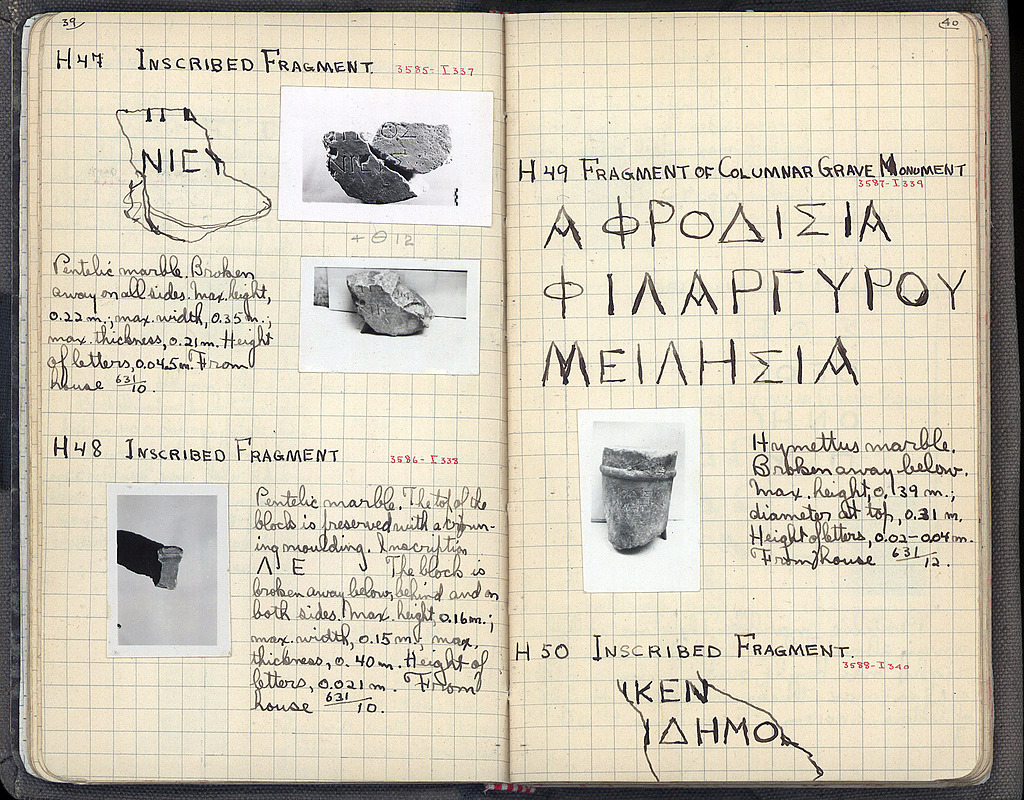 39
H 47 INSCRIBED FRAGMENT. 3585- I 337
ΝΙΕΥ
+ Θ 12
Pentelic marble. Broken
away on all sides. Max. height,
0.22 m.; max. width, 0.35 m.;
max. thickness, 0.21 m. Height
of letters, 0.045 m. From
house 631/10.
H 48 INSCRIBED FRAGMENT 3586- I 338
Pentelic marble. The top of the
block is preserved with a crown-
ing moulding. Inscription
Λ Ε The block is
broken away below, behind and on
both sides. Max. height, 0.16 m.;
max. width, 0.15 m.; max.
thickness, 0.40 m. Height of
letters, 0.021 m. From
house 631/10.
40
H 49 FRAGMENT OF COLUMNAR GRAVE MONUMENT
3587- I 339
ΑΦΡΟΔΙΣΙΑ
ΦΙΛΑΡΓΥΡΟΥ
ΜΕΙΛΗΣΙΑ
Hymettus marble.
Broken away below.
Max. height, 0.39 m.;
diameter at top, 0.31 m.
Height of letters, 0.02-0.04 m.
From house 631/12.
H 50 INSCRIBED FRAGMENT.
3588- I 340
ΚΕΝ
ΙΔΗΜΟ